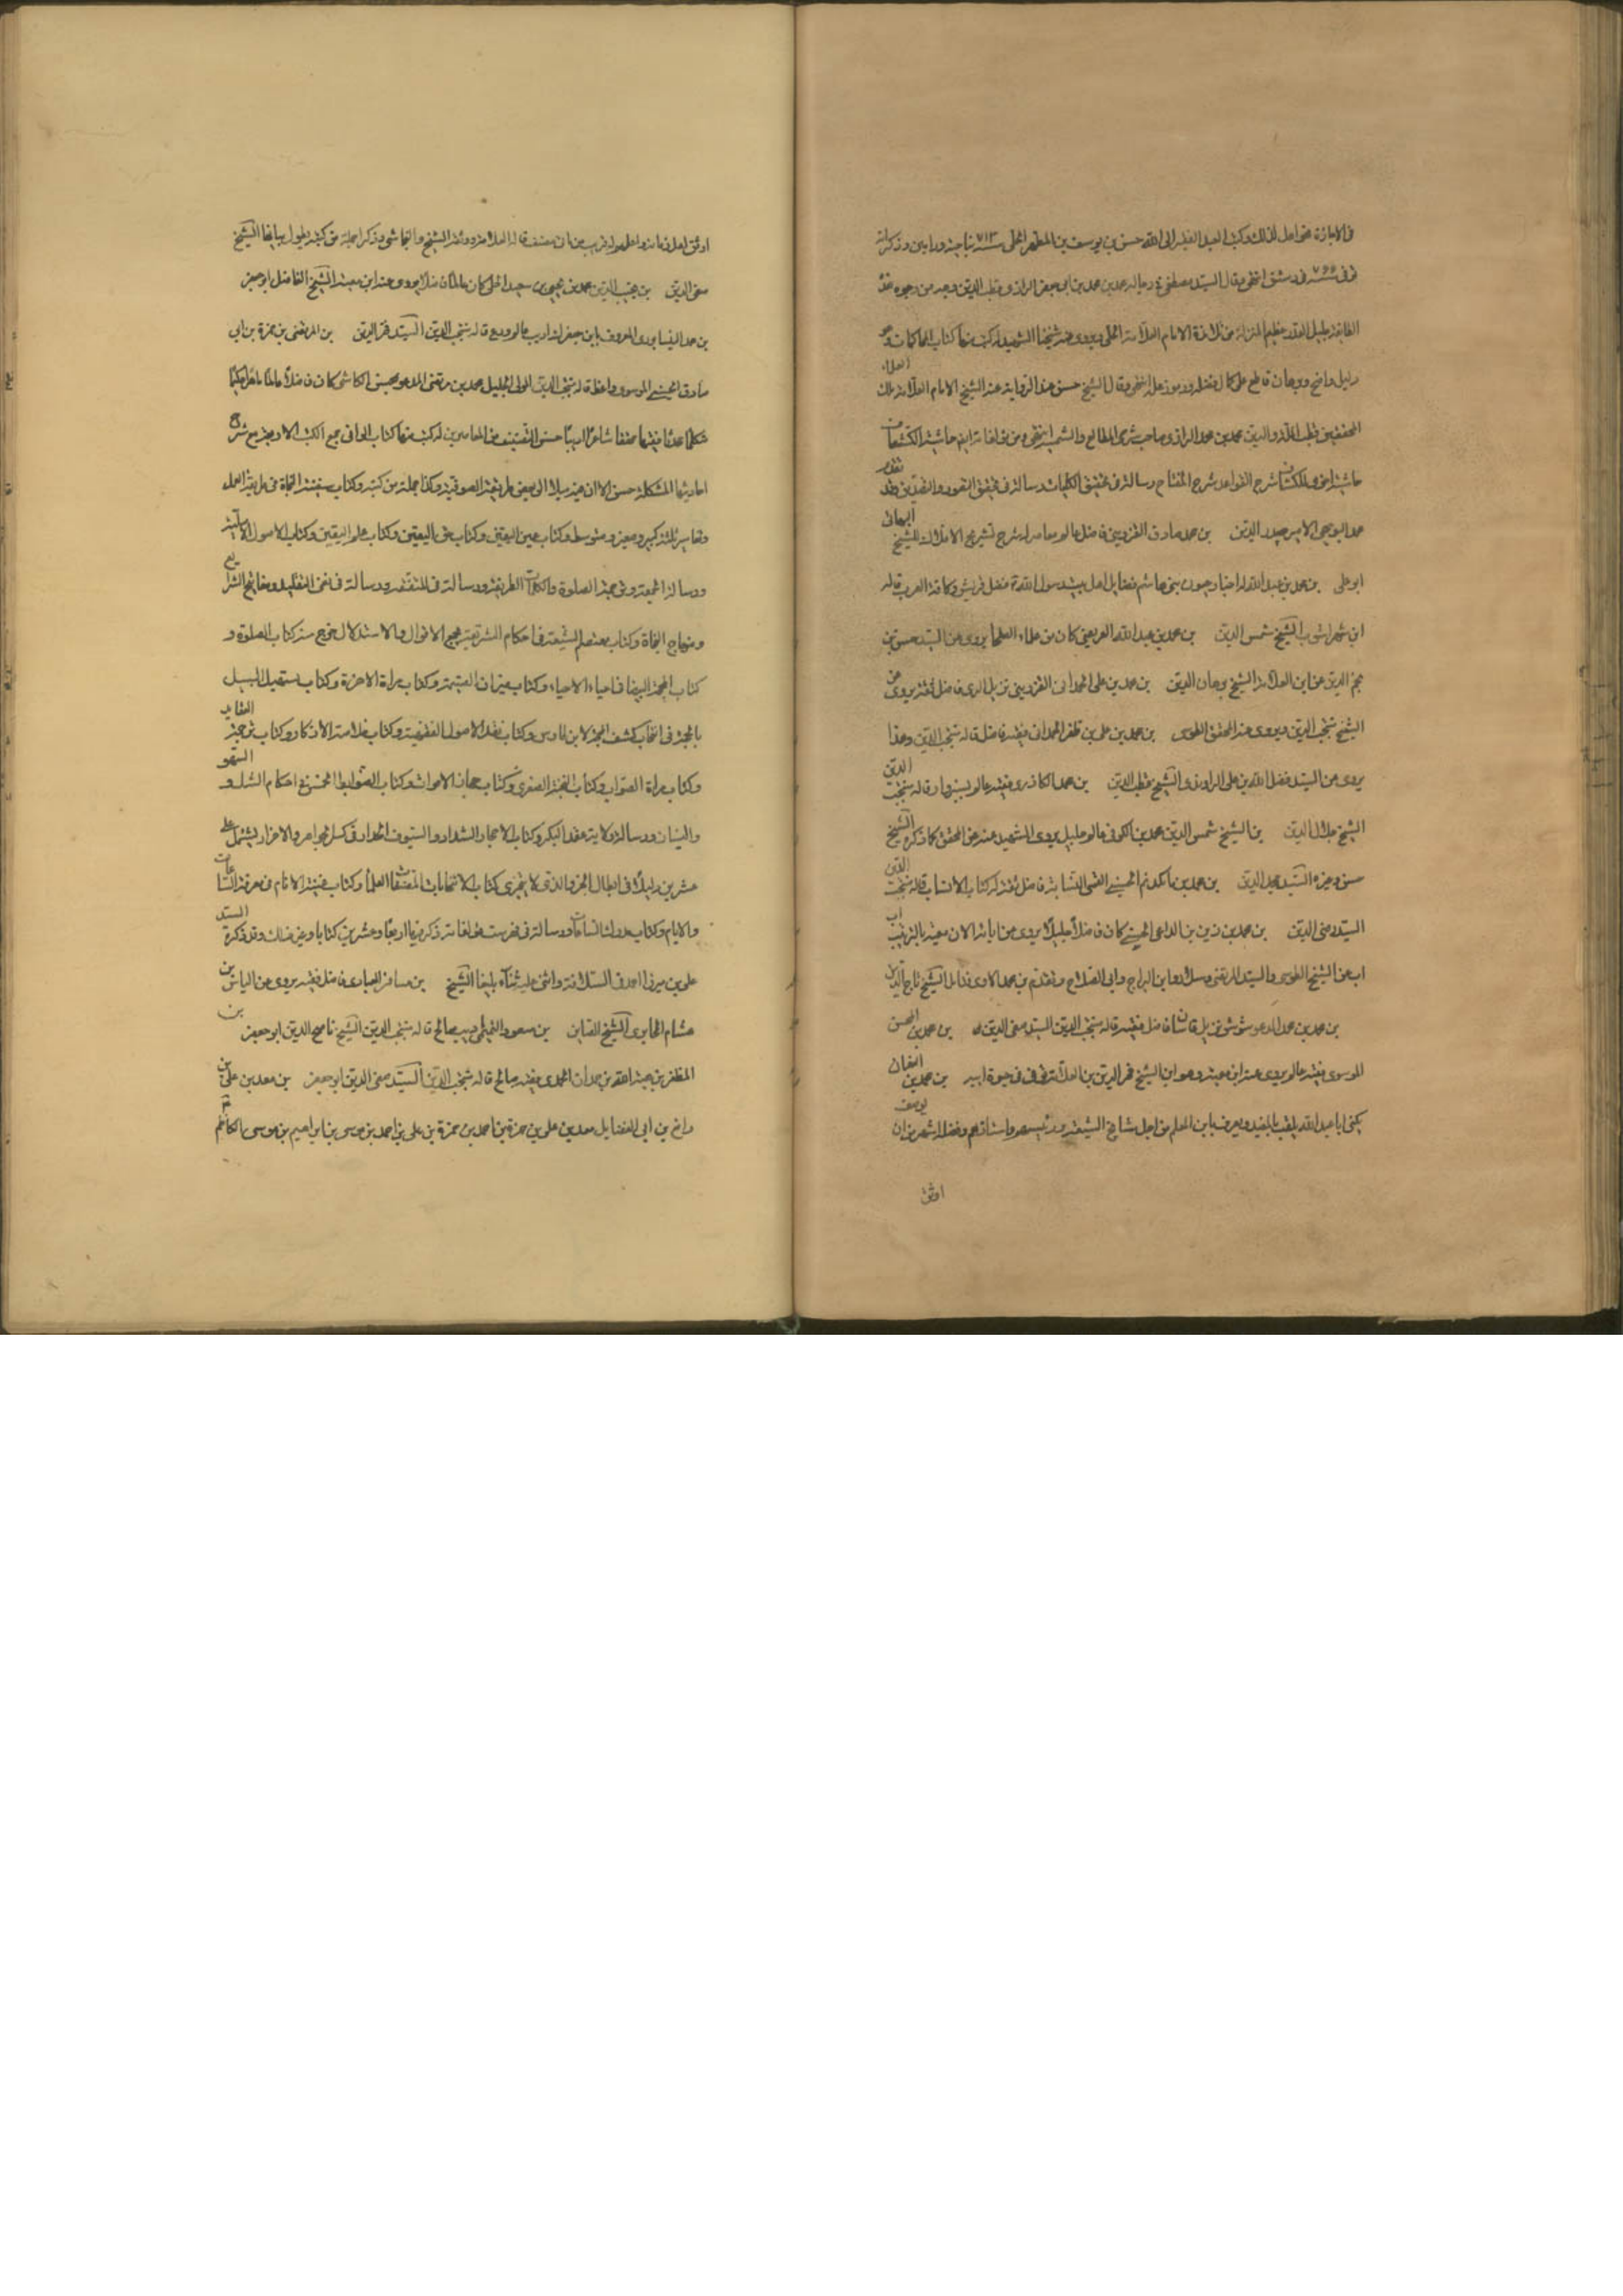 في الاجازة هو اهل لذلك وكتب العبد الفقير الى الله حسن بن يوسف بن المطهر الحلي سنة ٧١٣ بناحية ورامين وذكر انه
توفي سنة ٧٦٦ في دمشق انتهى وقال السيد مصطفى في رجاله محمد بن محمد بن ابي جعفر الرازي قطب الدين وجه من وجوه هذه
الطائفة جليل القدر عظيم المنزلة من تلامذة الامام العلامة الحلي وروى عنه شيخنا الشهيد له كتب منها كتاب المحاكمات وهو
دليل واضح وبرهان قاطع على كمال فضله ووفور علمه انتهى وقال الشيخ حسن عند الرواية عنه الشيخ الامام العلامة ملك العلماء
المحققين قطب الملة والدين محمد بن محمد الرازي صاحب شرحي المطالع والشمسية انتهى ومن مؤلفاته ايضا حاشية الكشاف
حاشية اخرى للكشاف شرح القواعد شرح المفتاح رسالة في تحقيق الكليات رسالة في تحقيق التصور والتصديق وقد تقدم
محمد البويهي الامير صدر الدين بن محمد صادق القزويني فاضل عالم معاصر له شرح تشريح الافلاك للشيخ البهائي
ابو علي بن محمد بن عبد الله له اخبار عيون بني هاشم فضايل اهل بيت رسول الله فضل قريش وكافة العرب قاله
ابن شهراشوب الشيخ شمس الدين بن محمد بن عبد الله العريضي كان من علماء العلما يروى عن السيد حسن بن
نجم الدين عن ابن العلامة الشيخ برهان الدين بن محمد بن علي الحمداني القزويني نزيل الري فاضل ثقة يروى عن
الشيخ منتجب الدين ويروى عنه المحقق الطوسي بن محمد بن علي بن ظفر الحمداني فقيه فاضل قاله منتجب الدين وهذا
يروى عن السيد فضل الله بن علي الراوندي الشيخ قطب الدين بن محمد الكاذري فقيه عالم بسبزوار قاله منتجب الدين
الشيخ جلال الدين بن الشيخ شمس الدين محمد بن الكوفي عالم جليل يروى الشهيد عنه عن المحقق كما ذكره الشيخ
حسن وغيره السيد مجد الدين بن محمد بن مانكديم الحسيني القمي النسابة فاضل ثقة له كتاب الانساب قاله منتجب الدين
السيد رضي الدين بن محمد بن زين بن الداعي الحسيني كان فاضلا جليلا يروى عن ابائه الاربعة بالترتيب اب
اب عن الشيخ الطوسي والسيد المرتضى وسلار وابن البراج وابي الصلاح وتقدم بن محمد الاوي فذاك الشيخ تاج الدين
بن محمد بن محمد المدعو شوشو نزيل قاشان فاضل فقيه قاله منتجب الدين السيد صفي الدين بن محمد بن الحسن
الموسوي فقيه عالم يروى عنه ابن معية وهو ابن الشيخ فخر الدين بن العلامة توفي في حيوة ابيه بن محمد بن النعمان
يكنى ابا عبد الله يلقب بالمفيد ويعرف بابن المعلم من اجل مشايخ الشيعة ورئيسهم واستاذهم وفضله اشهر من ان يوصف
اوثق
اوثق اهل زمانه واعلمهم له قريب من مائتي مصنف قاله العلامة ووثقه الشيخ والنجاشي وذكرا جملة من كتبه يطول بيانها الشيخ
صفي الدين بن نجيب الدين محمد بن يحيى بن سعيد الحلي كان عالما فاضلا يروى عنه ابن معية الشيخ الفاضل ابو جعفر
بن محمد النيسابوري المعروف بابن جعفرك اديب عالم ورع قاله منتجب الدين السيد فخر الدين بن المرتضى بن حمزة بن ابي
صادق الحسيني الموسوي واعظ قاله منتجب الدين المولى الجليل محمد بن مرتضى المدعو بمحسن الكاشي كان فاضلا عالما ماهرا حكيما
متكلما محدثا فقيها محققا شاعرا اديبا حسن التصنيف من المعاصرين له كتب منها كتاب الوافي جمع الكتب الاربعة مع شرح
احاديثها المشكلة حسن الا ان فيه ميلا الى بعض طريقة الصوفية وكذا جملة من كتبه وكتاب سفينة النجاة في طريقة العمل
وتفاسير ثلثة كبير وصغير ومتوسط وكتاب عين اليقين وكتاب حق اليقين وكتاب علم اليقين وكتاب الاصول الاصلية
ورسالة الجمعة وترجمة الصلوة والكلمات الطريفة ورسالة في التفقه ورسالة في نفي التقليد ومفاتيح الشرايع
ومنهاج النجاة وكتاب معتصم الشيعة في احكام الشريعة يجمع الاقوال والاستدلال خرج منه كتاب الصلوة و
كتاب المحجة البيضا في احياء الاحياء وكتاب ميزان القيمة وكتاب مرآة الاخرة وكتاب تسهيل السبيل
بالحجة في انتخاب كشف المحجة لابن طاوس وكتاب نقد الاصول الفقهية وكتاب خلاصة الاذكار وكتاب ترجمة العقايد
وكتاب مراة الصواب وكتاب النخبة الصغرى وكتاب جهاز الاموات وكتاب الضوابط الخمس في احكام الشك و السهو
والنسيان ورسالة ولاية عقد البكر وكتاب الاحجار الشداد والسيوف الحداد في كسر الجواهر والافراد يشتمل على
عشرين دليلا في ابطال الجزء الذي لا يتجزى كتاب الانتخابات لمصنفات العلما وكتاب غنية الانام في معرفة الساعات
والايام وكتاب حوادث الساعات ورسالة في فهرست مؤلفاته ذكر فيها اربعا وعشرين كتابا وغير ذلك وقد ذكره السيد
علي بن ميرزا احمد في السلافة واثنى عليه ثناء بليغا الشيخ بن مسافر العبادي فاضل فقيه يروى عن الياس بن
هشام الحايري الشيخ القاين بن مسعود التميمي اديب صالح قاله منتجب الدين الشيخ ناصح الدين ابو جعفر بن
المظفر بن هبة الله بن حمدان الحمدي فقيه صالح قاله منتجب الدين السيد صفي الدين ابو جعفر بن معد بن علي بن
رافع بن ابي الفضايل معد بن علي بن حمزة بن احمد بن حمزة بن علي بن احمد بن موسى بن ابراهيم بن موسى الكاظم